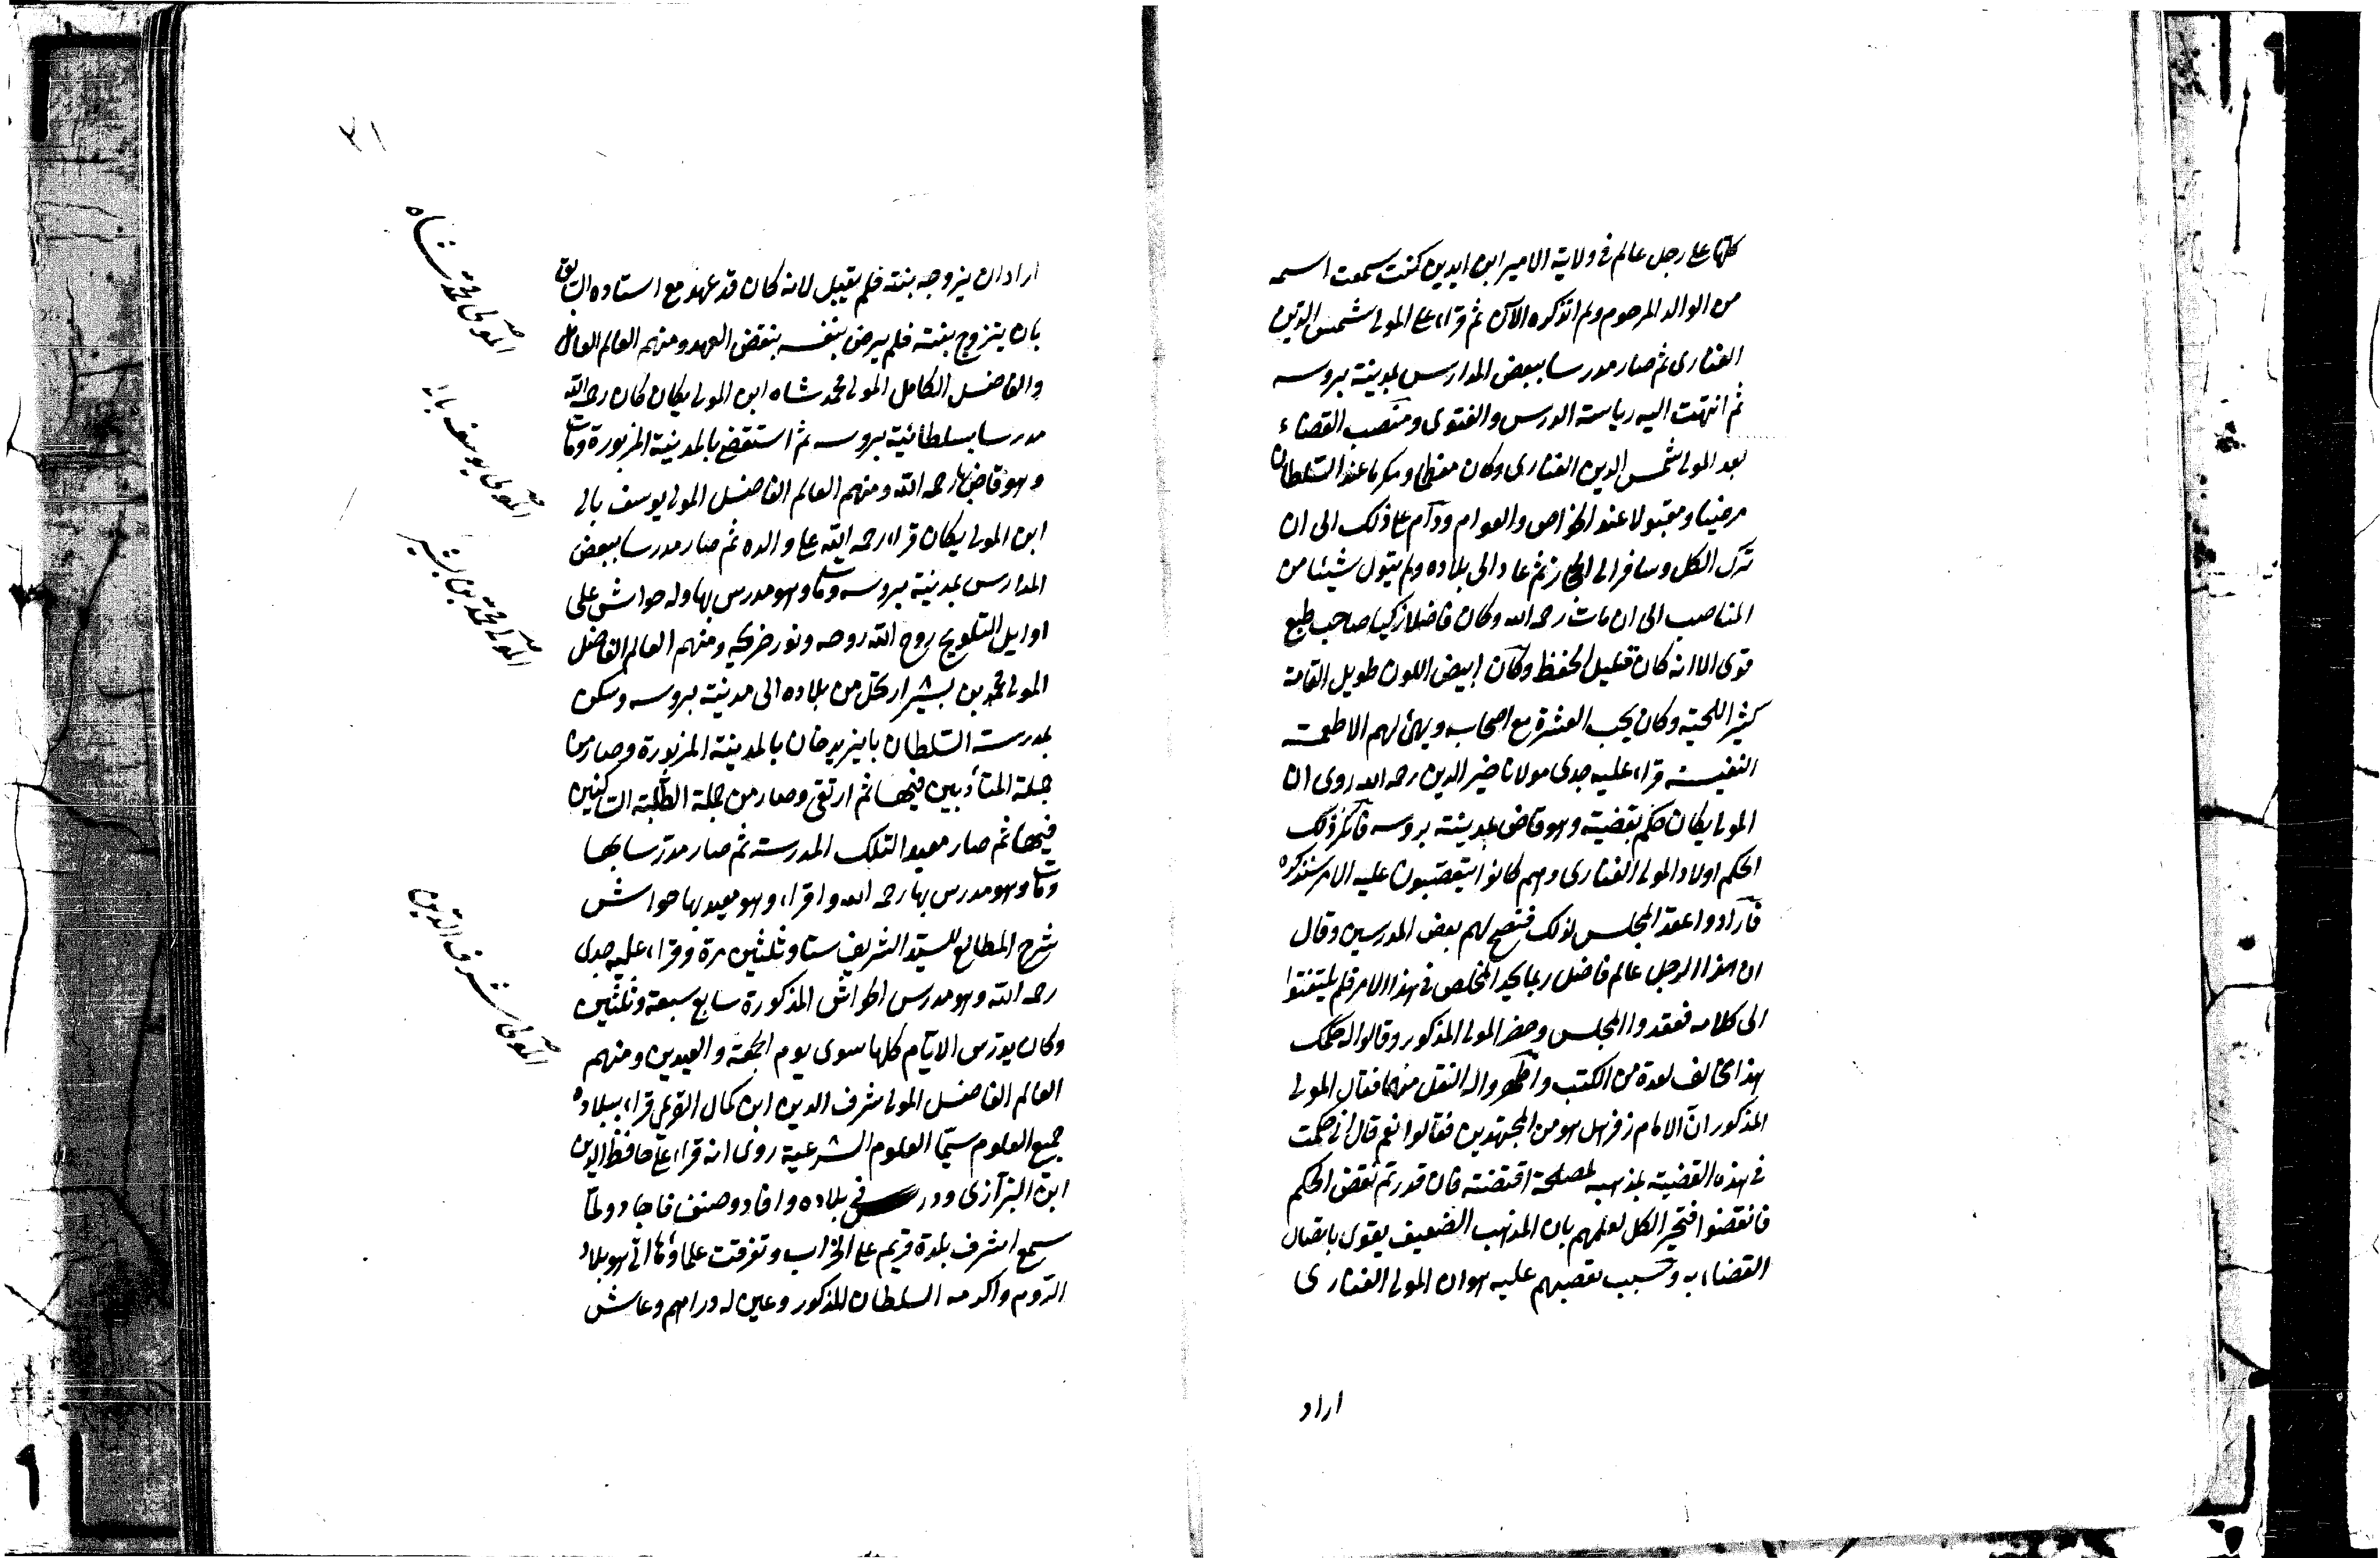 كلها على رجل عالم فى ولاية الامير ابن ايدين كنت سمعت اسمه
من الوالد المرحوم ولم اتذكره الآن ثم قراء على المولى شمس الدين
الفنارى ثم صار مدرسا ببعض المدارس بمدينة بروسه
ثم انتهت اليه رياسة الدرس والفتوى ومنصب القضاء
بعد المولى شمس الدين الفنارى وكان معظما ومكرما عند السلطان
مرضيا ومقبولا عند الخواص والعوام ودام على ذلك الى ان
ترك الكل وسافر الى الحجاز ثم عاد الى بلاده ولم يتول شيئا من
المناصب الى ان مات رحمه الله وكان فاضلا زكيا صاحب طبع
قوى الا انه كان قليل الحفظ وكان ابيض اللون طويل القامة
كثير اللحية وكان يحب العشرة مع اصحابه ويهئ لهم الاطعمة
النفيسة قراء عليه جدى مولانا خير الدين رحمه الله روى ان
المولى يكان حكم بقضية وهو قاض بمدينة بروسه فانكر ذلك
الحكم اولاد المولى الفنارى وهم كانوا يتعصبون عليه لامر سنذكره
فارادوا عقد المجلس لذلك فنصح لهم بعض المدرسين وقال
ان هذا الرجل عالم فاضل ربما يجد المخلص فى هذا الامر فلم يلتفتوا
الى كلامه فعقدوا المجلس وحضر المولى المذكور وقالوا له حكمك
هذا مخالف لعدة من الكتب واظهروا له النقل منها فقال المولى
المذكور ان الامام زفر هل هو من المجتهدين فقالوا نعم قال انى حكمت
فى هذه القضية بمذهبه لمصلحة اقتضته فان قدرتم نقض الحكم
فانقضوا فتحير الكل لعلمهم بان المذهب الضعيف يقوى باتصال
القضاء به وسبب تعصبهم عليه هو ان المولى الفنارى
اراد
٣١
اراد ان يزوجه بنته فلم يقبل لانه كان قد عهد مع استاده السابق
بان يتزوج بنته فلم يرض بنفسه بنقض العهد ومنهم العالم العامل
والفاضل الكامل المولى محمد شاه ابن المولى يكان كان رحمه الله
مدرسا بسلطانية بروسه ثم استقضى بالمدينة المزبورة ومات
وهو قاض بها رحمه الله ومنهم العالم الفاضل المولى يوسف بالى
ابن المولى يكان قراء رحمه الله على والده ثم صار مدرسا ببعض
المدارس بمدينة بروسه ومات وهو مدرس بها وله حواش على
اوايل التلويح روح الله روحه ونور ضريحه ومنهم العالم الفاضل
المولى محمد بن بشير ارتحل من بلاده الى مدينة بروسه وسكن
بمدرسة السلطان بايزيد خان بالمدينة المزبورة وصار من
جملة المتأدبين فيها ثم ارتقى وصار من جملة الطلبة الساكنين
فيها ثم صار معيدا لتلك المدرسة ثم صار مدرسا بها
ومات وهو مدرس بها رحمه الله واقراء وهو معيد بها حواش
شرح المطالع للسيد الشريف ستا وثلثين مرة وقراء عليه جدى
رحمه الله وهو مدرس الحواشى المذكورة سابع سبعة وثلثين
وكان يدرس الايام كلها سوى يوم الجمعة والعيدين ومنهم
العالم الفاضل المولى شرف الدين ابن كمال القريمى قراء ببلاده
جميع العلوم سيما العلوم الشرعية روى انه قراء على حافظ الدين
ابن البزازى ودرس فى بلاده وافاد وصنف فاجاد ولما
سمع اشرف بلدة قريم على الخراب وتفرقت علماؤها اتى هو بلاد
الروم واكرمه السلطان المذكور وعين له دراهم وعاش
المولى محمد شاه
المولى يوسف بالى
المولى محمد بن البشير
المولى شرف الدين